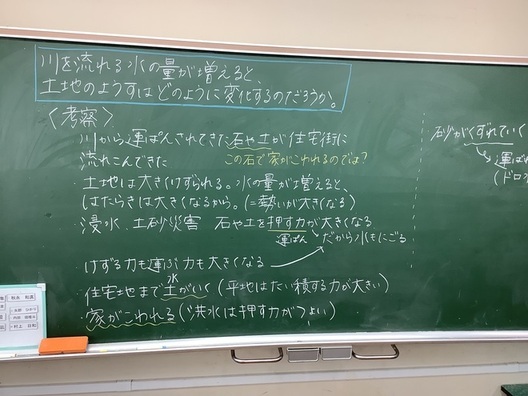 川を流れる水の量が増えると、
土地のようすはどのように変化するのだろうか。
〈考察〉
川から運ぱんされてきた石や土が住宅街に
流れこんできた
この石で家がこわれるのでは?
・土地は大きくけずられる。水の量が増えると、
はたらきは大きくなるから。(=勢いが大きくなる)
・浸水、土砂災害 石や土を押す力が大きくなる
運ぱん だから水もにごる
・けずる力も運ぶ力も大きくなる
・住宅地まで土がいく(平地はたい積する力が大きい)
水
・家がこわれる(洪水は押す力がつよい)
砂がくずれていく
運ぱ
(ドロ